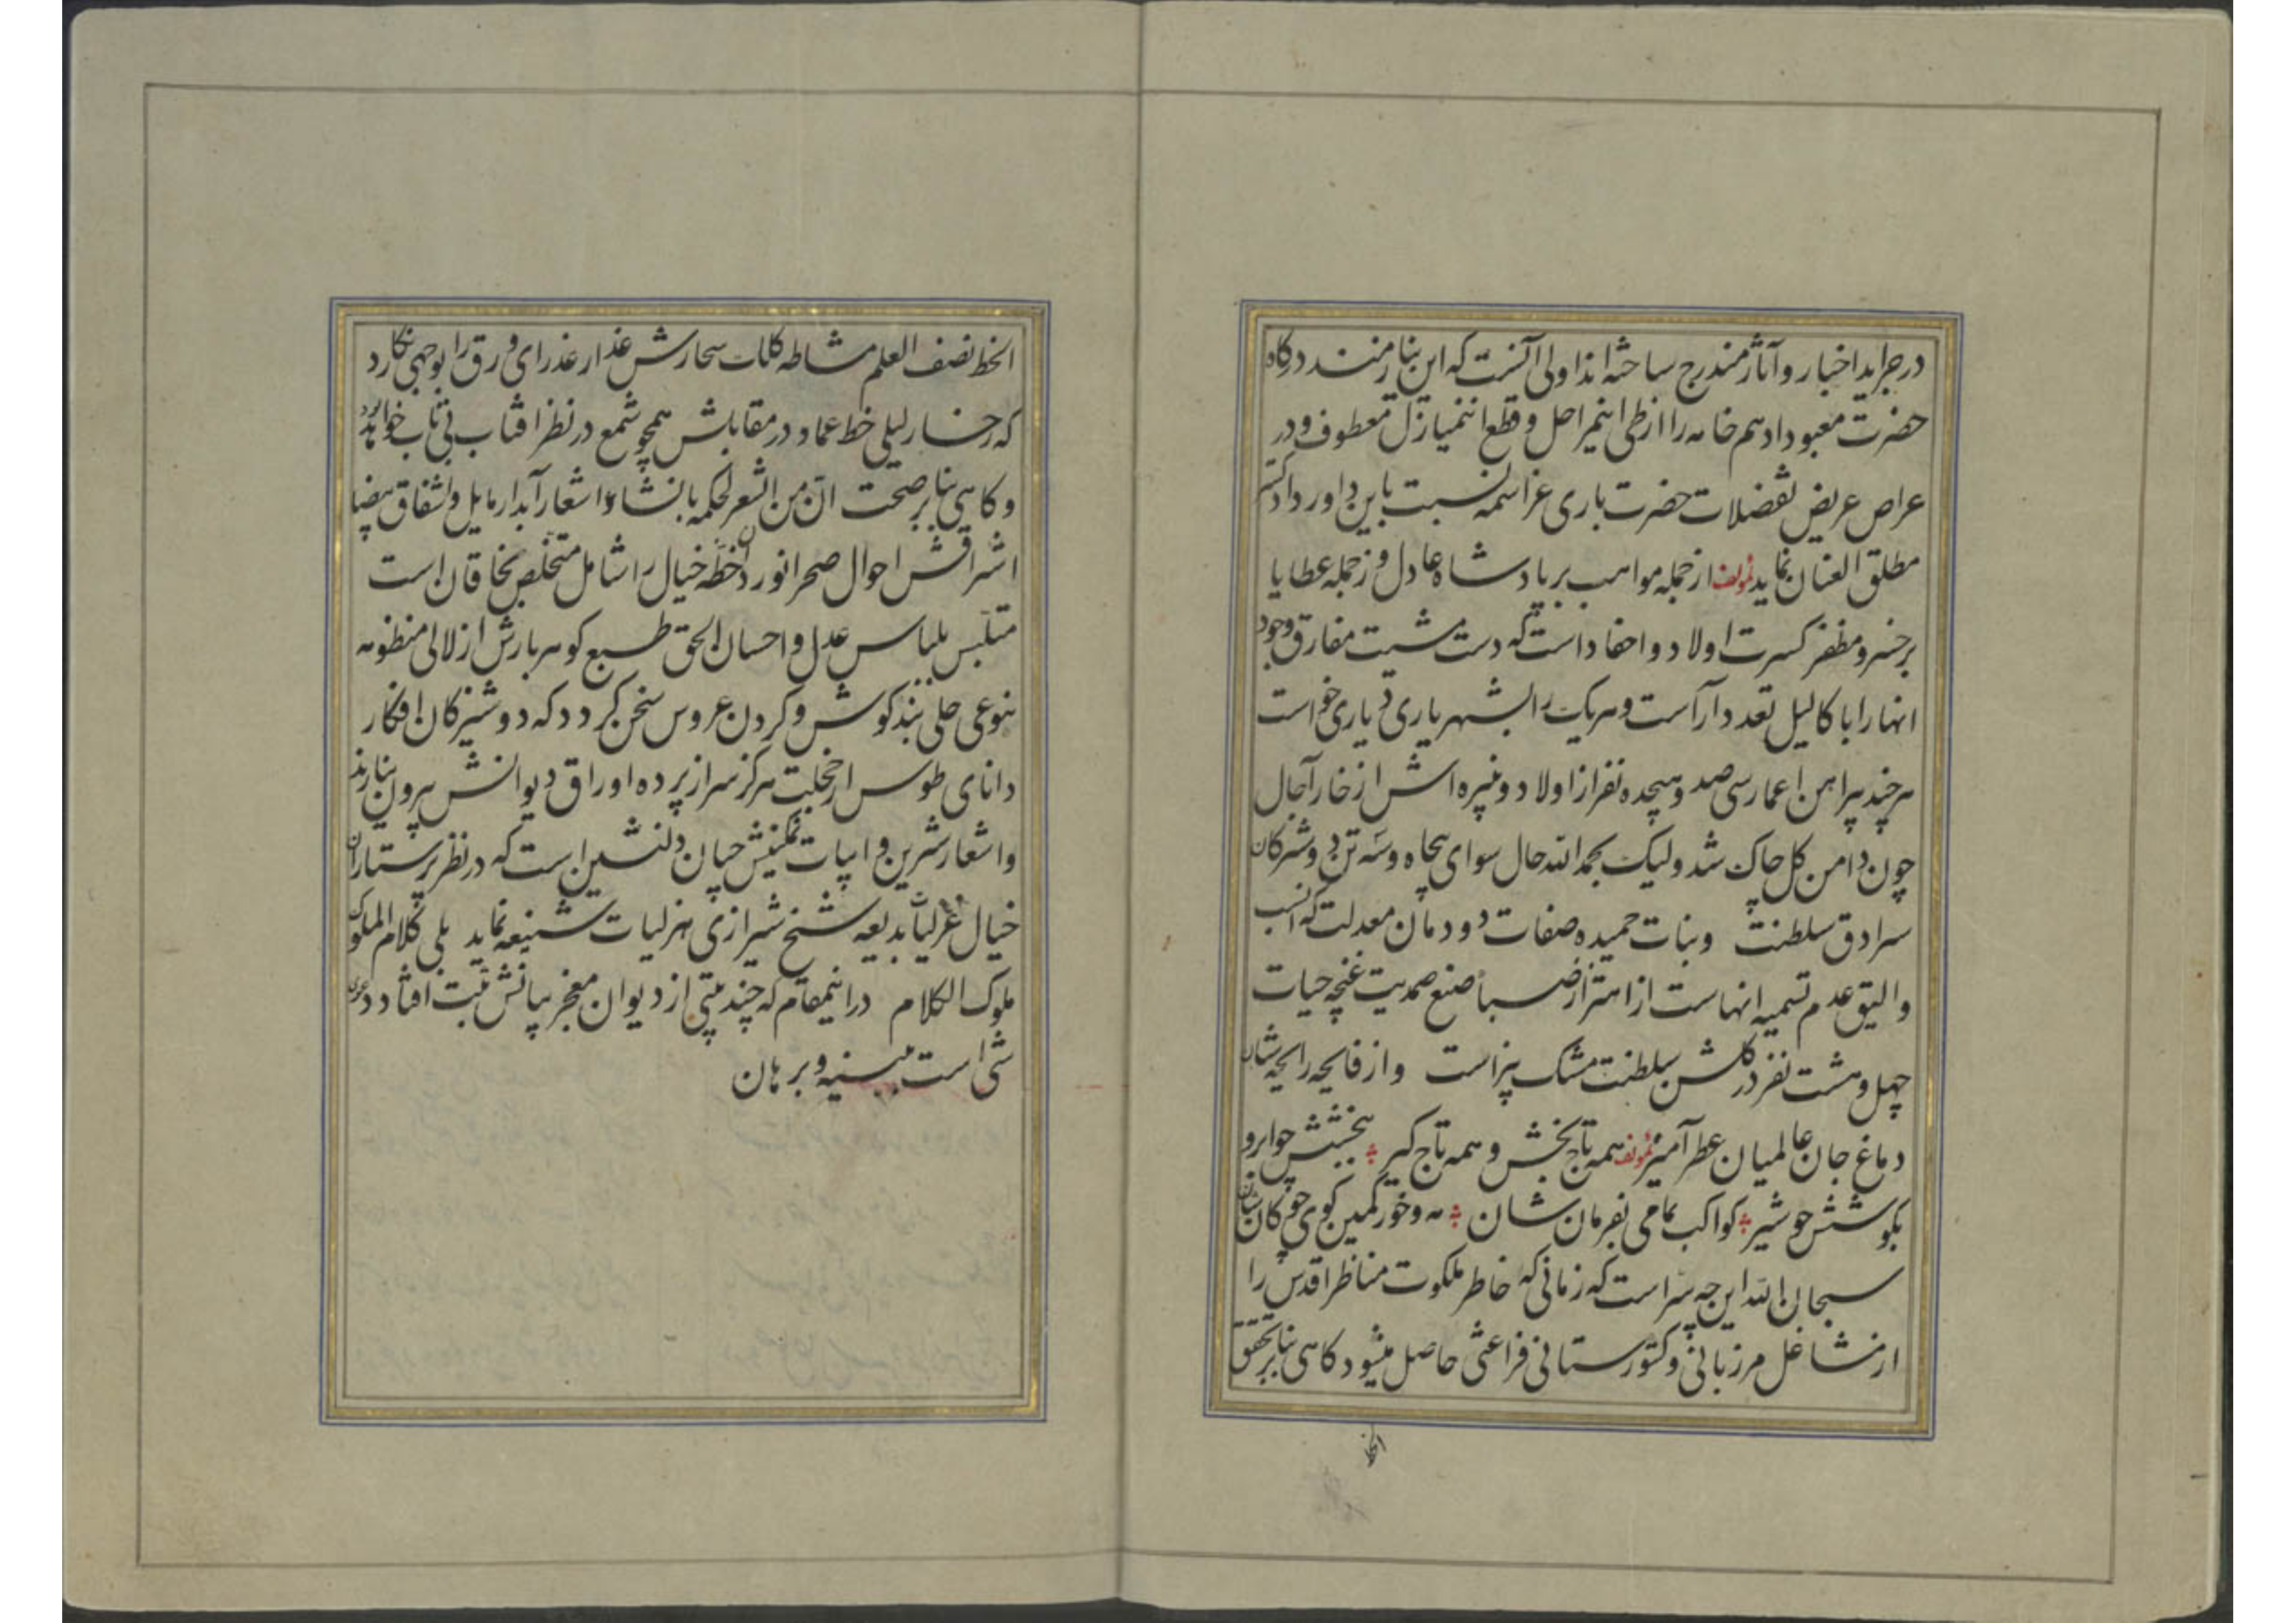 در جراید اخبار و آثار مندرج ساخته اند اولی آنست که این بنا زمند درگاه
حضرت معبود ادهم خامه را از طی اینمراحل و قطع اینمنازل معطوف و در
عراص عریض تفضلات حضرت باری عز اسمه نسبت باین داور دادگستر
مطلق العنان نماید لمؤلفه از جمله مواهب بر پادشاه عادل و ز جمله عطایا
بر خسرو مظفر کسرت اولاد و احفاد است که دست مشیت مفارق وجود
انها را با کالیل تعدد آراست و هریک را بشهریاری دیاری خواست
هر چند پیراهن اعمار سی صد و هیجده نفر از اولاد و نبیره اش از خار آجال
چون دامن کل چاک شد ولیک بحمد الله حال سوای پنجاه و سه تن دوشیزکان
سرادق سلطنت و بنات حمیده صفات دودمان معدلت که انسب
و الیق عدم تسمیه انهاست از اهتزاز صبا صنع صمدیت غنچه حیات
چهل و هشت نفر در کلشن سلطنت مشک بیز است و از فایحه رایحه شان
دماغ جان عالمیان عطر آمیز لمؤلفه همه تاج بخش و همه تاج کیر بخشش چو ابر و
بکوشش چو شیر کواکب تمامی بفرمان شان مه و خور کمین کوی چوکان شان
سبحان الله این چه سر است که زمانی که خاطر ملکوت مناظر اقدس را
از مشاغل مرزبانی و کشورستانی فراغتی حاصل میشود کاهی بنا بر تحقق
الخط
الخط نصف العلم مشاطه کلک سحارش عذار عذرای ورق را بوجهی نکارد
که رخسار لیلی خط عماد در مقابلش همچو شمع در نظر افتاب بی تاب خواهد بود
و کاهی بنا بر صحت ان من الشعر لحکمه بانشاء اشعار آبدار مایل و اشفاق بیضا
اشراقش احوال صحرا نوردان خطه خیال را شامل متخلص بخاقان است
متلبس بلباس عدل و احسان الحق طبع کوهر بارش از لالی منظومه
بنوعی حلی بند کوش و کردن عروس سخن کردد که دوشیزکان افکار
دانای طوس از خجلت هرکز سر از پرده اوراق دیوانش بیرون نیارند
و اشعار شیرین و ابیات نمکینش چنان دلنشین است که در نظر پرستاران
خیال غزلیات بدیعه شیخ شیرازی هزلیات شنیعه نماید بلی کلام الملوک
ملوک الکلام در اینمقام که چند بیتی از دیوان معجز بیانش ثبت افتاد دعوی
شی است ببینه و برهان